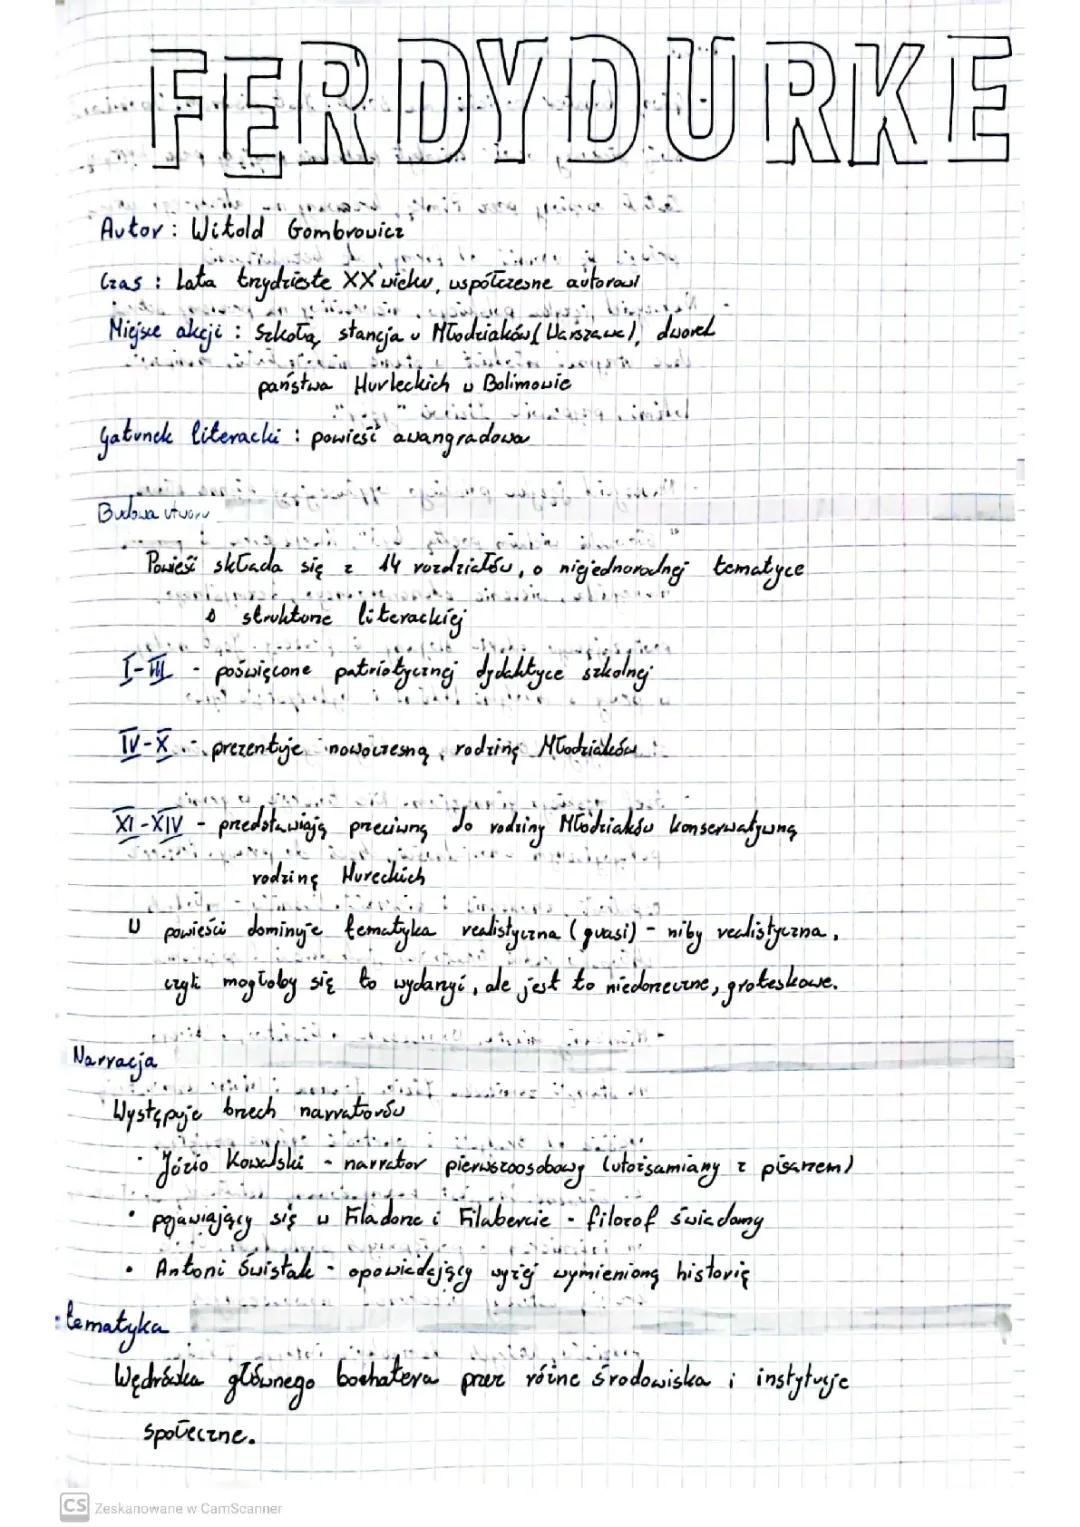 FERDYDURKE
Autor : Witold Gombrowicz
Czas : Lata trzydzieste XX wieku, współczesne autorowi
Miejsce akcji : Szkoła, stancja u Młodziaków (Warszawa), dworek
państwa Hurleckich w Bolimowie
gatunek literacki : powieść awangradowa
Budowa utworu
Powieść składa się z 14 rozdziałów, o niejednorodnej tematyce
o strukturze literackiej
I-III - poświęcone patriotycznej dydaktyce szkolnej
IV-X - prezentuje nowoczesną rodzinę Młodziaków
XI-XIV - przedstawiają przeciwną do rodziny Młodziaków konserwatywną
rodzinę Hureckich
W powieści dominuje tematyka realistyczna (quasi) - niby realistyczna,
czyli mogłoby się to wydarzyć, ale jest to niedorzeczne, groteskowe.
Narracja
Występuje trzech narratorów
· Józio Kowalski - narrator pierwszoosobowy (utożsamiany z pisarzem)
• pojawiający się w Filadorze i Filabercie - filozof świadomy
• Antoni Świstak - opowiadający wyżej wymienioną historię
tematyka
Wędrówka głównego bochatera przez różne środowiska i instytucje
społeczne.
CS Zeskanowane w CamScanner